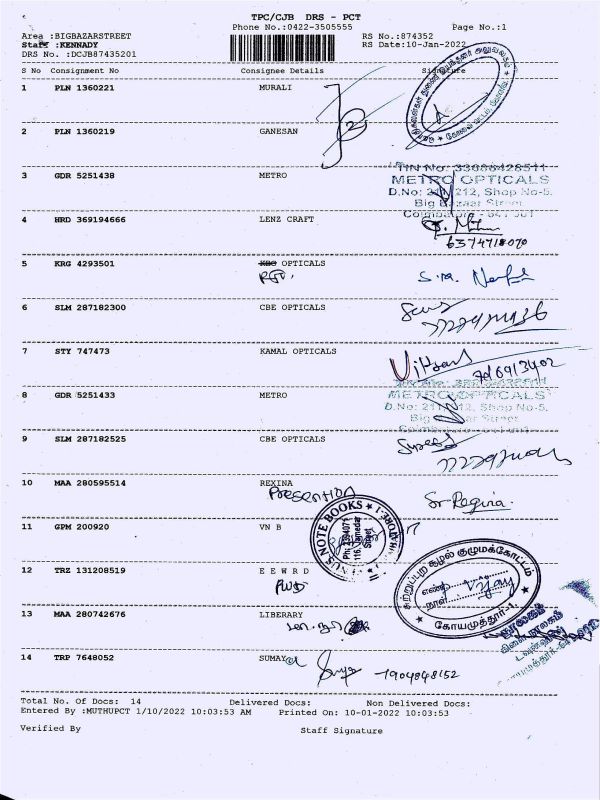 TPC/CJB DRS - PCT
Phone No.:0422-3505555 Page No.:1
Area :BIGBAZARSTREET RS No.:874352
Staff :KENNADY RS Date:10-Jan-2022
DRS No. :DCJB87435201
S No Consignment No Consignee Details Signature
1 PLN 1360221 MURALI
2 PLN 1360219 GANESAN
3 GDR 5251438 METRO
TIN No: 33086428511
METRO OPTICALS
D.No: 211/212, Shop No-5.
Big Bazaar Street
Coimbatore - 641 001
4 HRD 369194666 LENZ CRAFT
6374718070
5 KRG 4293501 KBG OPTICALS
6 SLM 287182300 CBE OPTICALS
7 STY 747473 KAMAL OPTICALS
8 GDR 5251433 METRO
METRO OPTICALS
D.No: 211/212, Shop No-5.
Big Bazaar Street
9 SLM 287182525 CBE OPTICALS
10 MAA 280595514 REXINA
Presention Sr. Regina.
11 GPM 200920 VN B
NOTE BOOKS
Street
12 TRZ 131208519 E E W R D
PWD
சுற்றுப்புற சூழல் குழுமக்கோட்டம்
எண்
நாள்
Vijay
கோயமுத்தூர்-1.
13 MAA 280742676 LIBERARY
14 TRP 7648052 SUMAYA
7904848152
Total No. Of Docs: 14 Delivered Docs: Non Delivered Docs:
Entered By :MUTHUPCT 1/10/2022 10:03:53 AM Printed On: 10-01-2022 10:03:53
Verified By Staff Signature